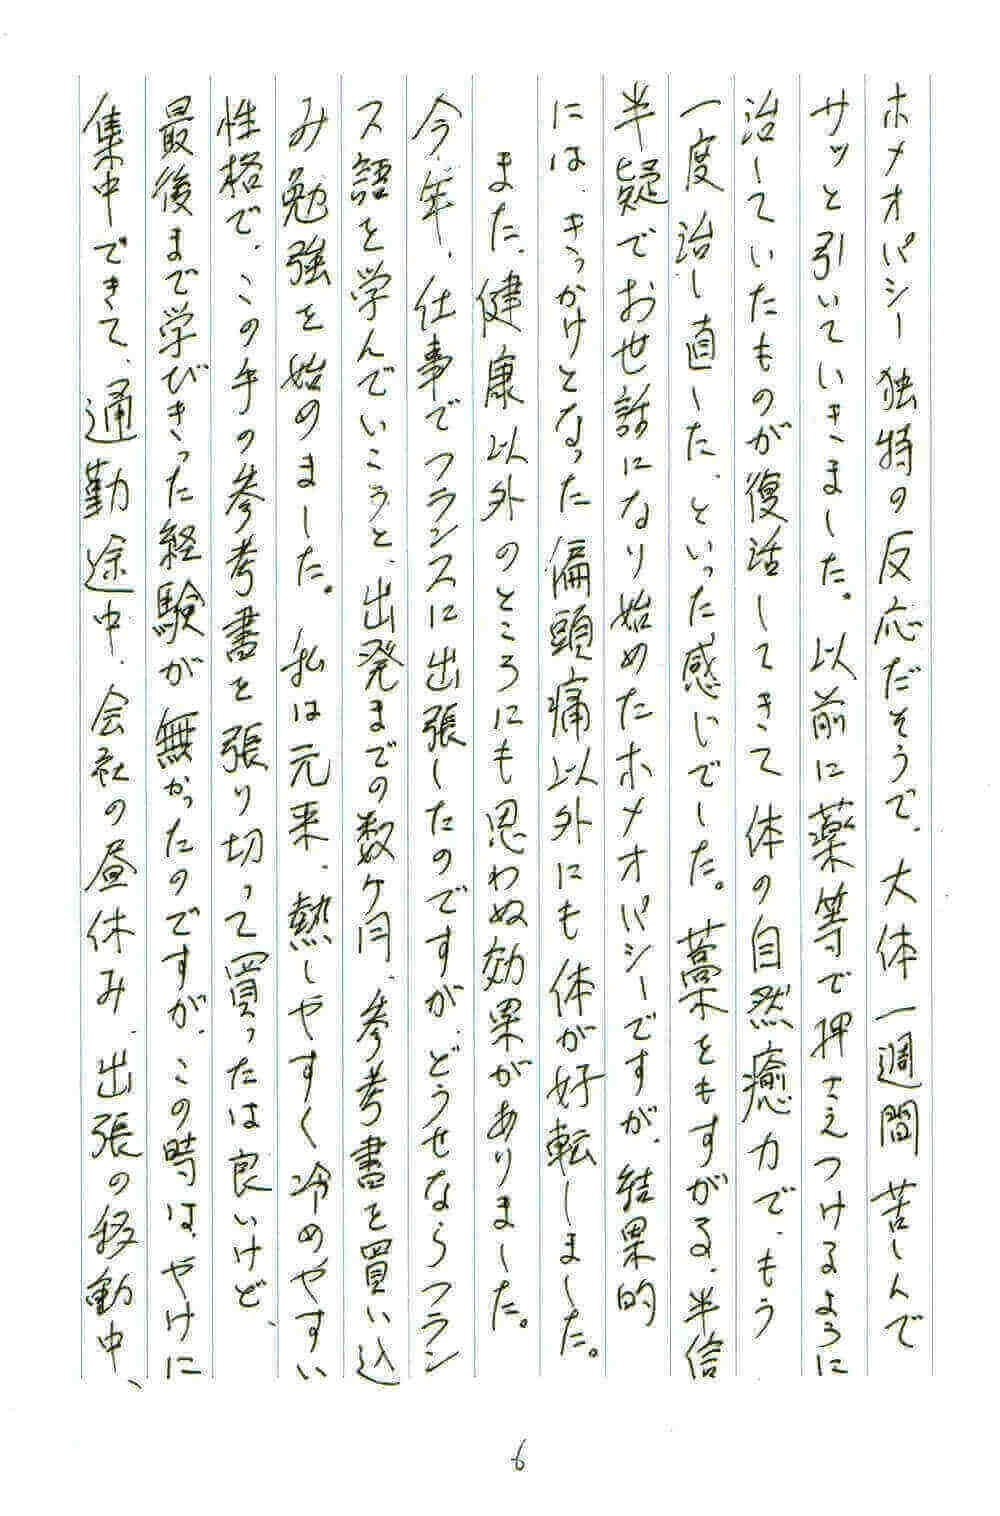 ホメオパシー独特の反応だそうで、大体一週間苦しんで
サッと引いていきました。以前に薬等で押さえつけるように
治していたものが復活してきて体の自然癒力で、もう
一度治し直した、といった感じでした。藁をもすがる、半信
半疑でお世話になり始めたホメオパシーですが、結果的
には、きっかけとなった偏頭痛以外にも体が好転しました。
また、健康以外のところにも思わぬ効果がありました。
今年、仕事でフランスに出張したのですが、どうせならフラン
ス語を学んでいこうと、出発までの数ヶ月、参考書を買い込
み勉強を始めました。私は元来、熱しやすく冷めやすい
性格で、この手の参考書を張り切って買ったは良いけど、
最後まで学びきった経験が無かったのですが、この時は、やけに
集中できて、通勤途中、会社の昼休み、出張の移動中、
6